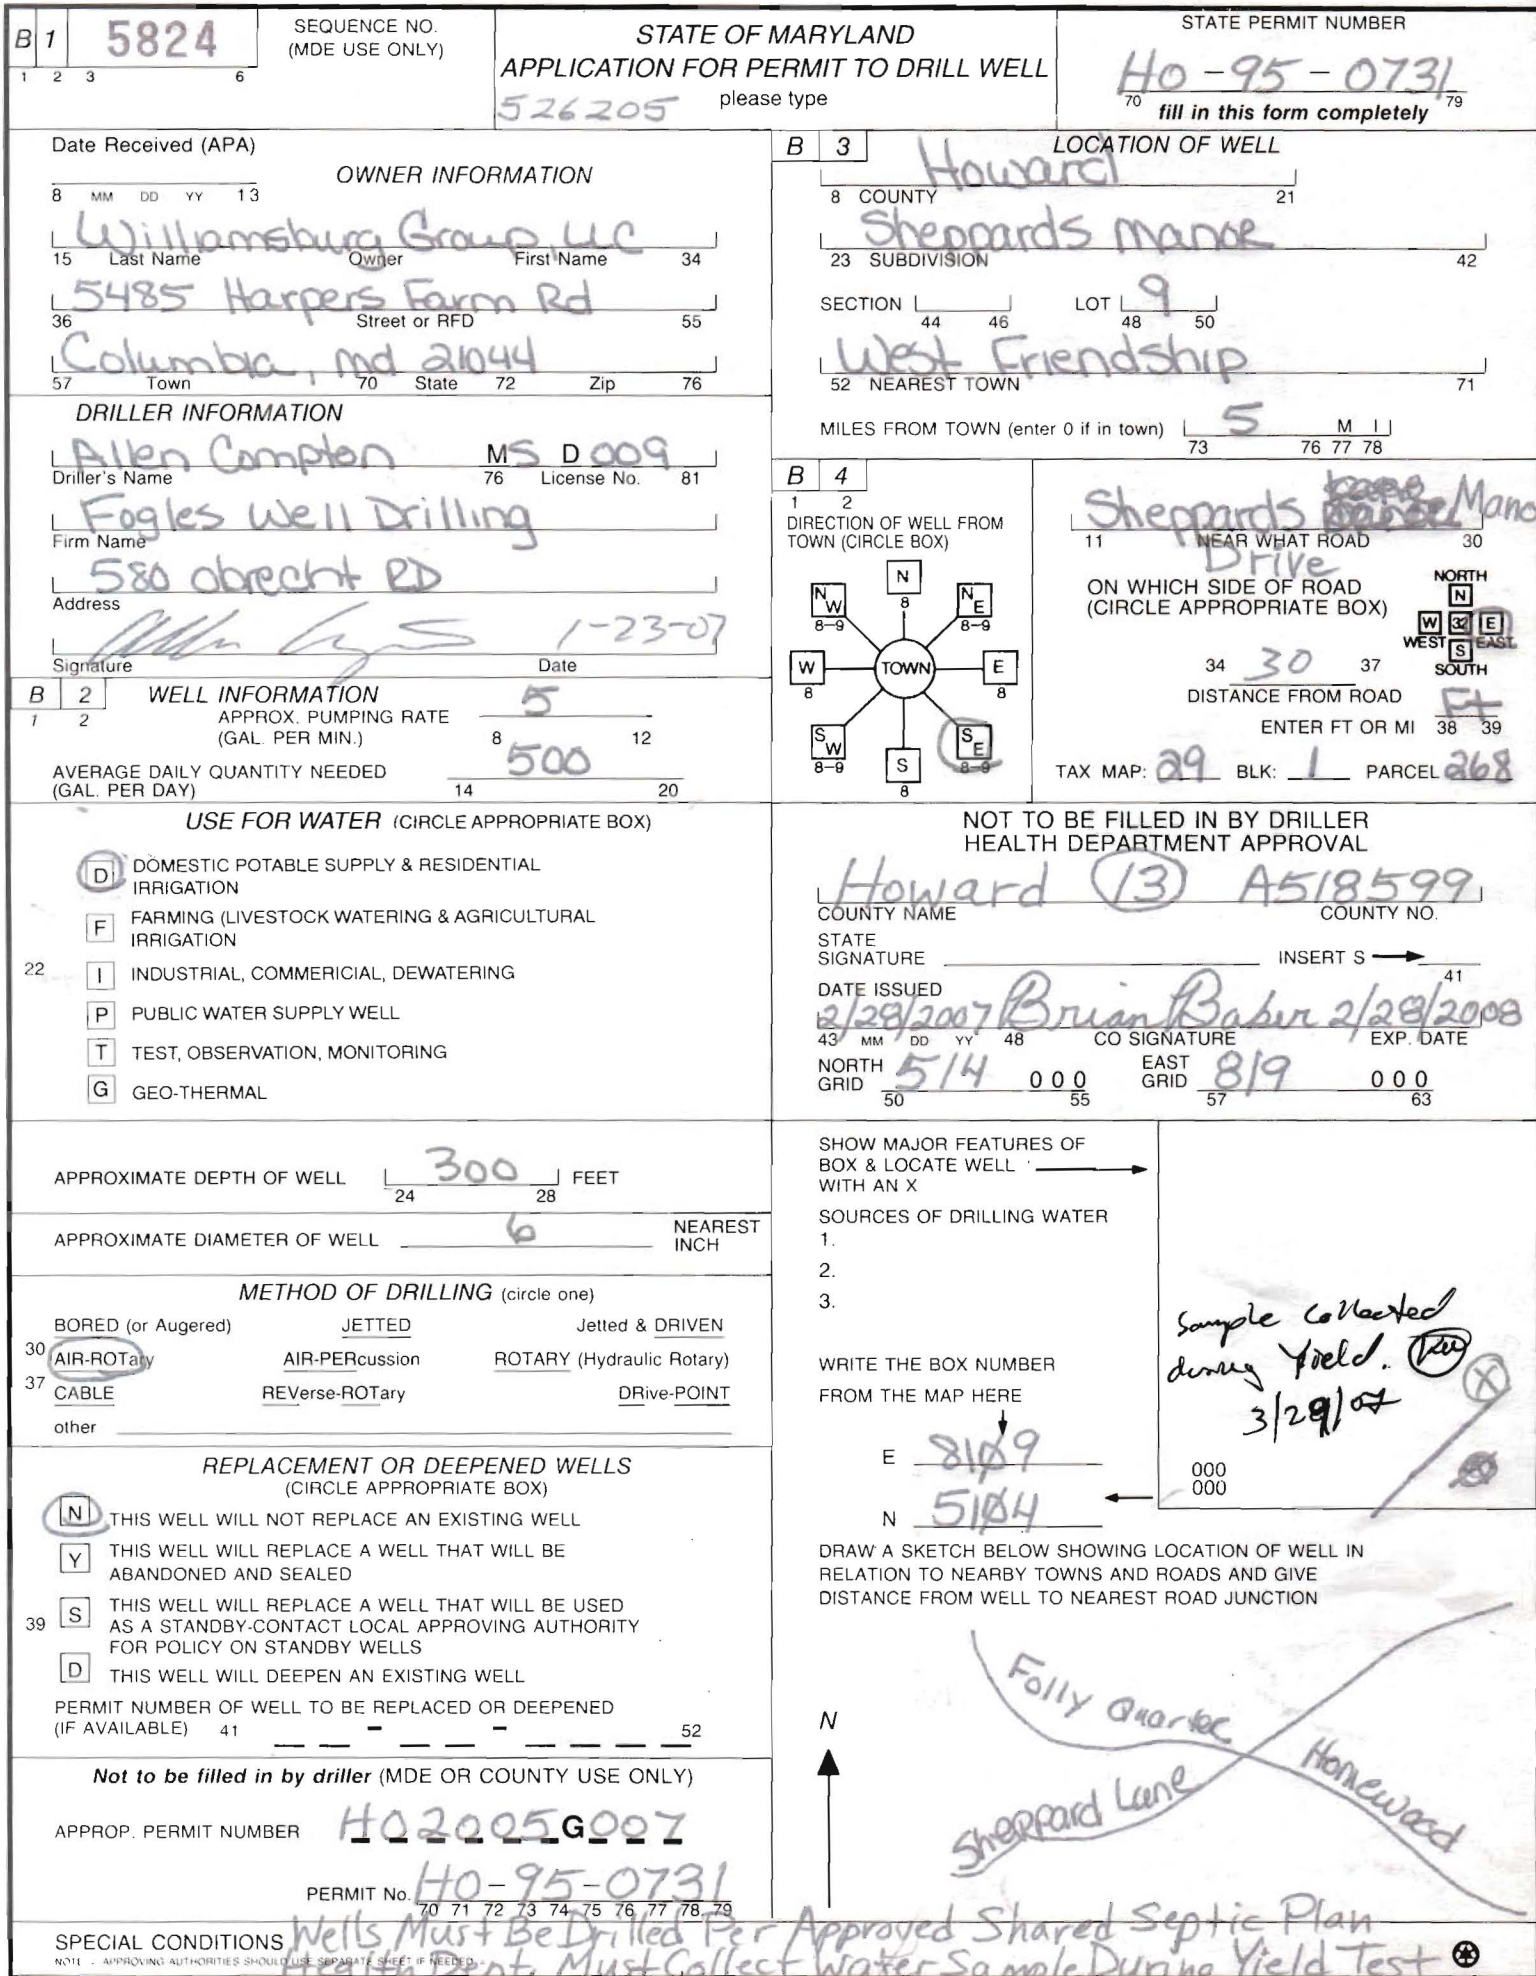 B 1 5824
1 2 3 6
SEQUENCE NO.
(MDE USE ONLY)
STATE OF MARYLAND
APPLICATION FOR PERMIT TO DRILL WELL
526205 please type
STATE PERMIT NUMBER
HO-95-0731
70 79
fill in this form completely
Date Received (APA)
8 MM DD YY 13
OWNER INFORMATION
Williamsburg Group, LLC
15 Last Name Owner First Name 34
5485 Harpers Farm Rd
36 Street or RFD 55
Columbia, md 21044
57 Town 70 State 72 Zip 76
DRILLER INFORMATION
Allen Compton MS D 009
Driller's Name 76 License No. 81
Fogles Well Drilling
Firm Name
580 Obrecht RD
Address
1-23-07
Signature Date
B 2 WELL INFORMATION
1 2
APPROX. PUMPING RATE 5
(GAL. PER MIN.) 8 12
AVERAGE DAILY QUANTITY NEEDED 500
(GAL. PER DAY) 14 20
USE FOR WATER (CIRCLE APPROPRIATE BOX)
D DOMESTIC POTABLE SUPPLY & RESIDENTIAL
IRRIGATION
F FARMING (LIVESTOCK WATERING & AGRICULTURAL
IRRIGATION
22 I INDUSTRIAL, COMMERICIAL, DEWATERING
P PUBLIC WATER SUPPLY WELL
T TEST, OBSERVATION, MONITORING
G GEO-THERMAL
APPROXIMATE DEPTH OF WELL 300 FEET
24 28
APPROXIMATE DIAMETER OF WELL 6 NEAREST
INCH
METHOD OF DRILLING (circle one)
BORED (or Augered) JETTED Jetted & DRIVEN
30 AIR-ROTary AIR-PERcussion ROTARY (Hydraulic Rotary)
37 CABLE REVerse-ROTary DRive-POINT
other
REPLACEMENT OR DEEPENED WELLS
(CIRCLE APPROPRIATE BOX)
N THIS WELL WILL NOT REPLACE AN EXISTING WELL
Y THIS WELL WILL REPLACE A WELL THAT WILL BE
ABANDONED AND SEALED
39 S THIS WELL WILL REPLACE A WELL THAT WILL BE USED
AS A STANDBY-CONTACT LOCAL APPROVING AUTHORITY
FOR POLICY ON STANDBY WELLS
D THIS WELL WILL DEEPEN AN EXISTING WELL
PERMIT NUMBER OF WELL TO BE REPLACED OR DEEPENED
(IF AVAILABLE) 41 - - 52
Not to be filled in by driller (MDE OR COUNTY USE ONLY)
APPROP. PERMIT NUMBER HO2005G007
PERMIT No. HO-95-0731
70 71 72 73 74 75 76 77 78 79
B 3 LOCATION OF WELL
Howard
8 COUNTY 21
Sheppards Manor
23 SUBDIVISION 42
SECTION LOT 9
44 46 48 50
West Friendship
52 NEAREST TOWN 71
MILES FROM TOWN (enter 0 if in town) 5 M I
73 76 77 78
B 4
1 2
DIRECTION OF WELL FROM
TOWN (CIRCLE BOX)
N
8
NW NE
8-9 8-9
W TOWN E
8 8
SW SE
8-9 8-9
S
8
Sheppards Mano
11 NEAR WHAT ROAD 30
Drive
ON WHICH SIDE OF ROAD
(CIRCLE APPROPRIATE BOX)
NORTH
N
W 32 E
WEST S EAST
SOUTH
34 30 37
DISTANCE FROM ROAD
ENTER FT OR MI Ft
38 39
TAX MAP: 29 BLK: 1 PARCEL 268
NOT TO BE FILLED IN BY DRILLER
HEALTH DEPARTMENT APPROVAL
Howard 13 A518599
COUNTY NAME COUNTY NO.
STATE
SIGNATURE INSERT S
41
DATE ISSUED
2/28/2007 Brian Baber 2/28/2008
43 MM DD YY 48 CO SIGNATURE EXP. DATE
NORTH
GRID 514 000
50 55
EAST
GRID 819 000
57 63
SHOW MAJOR FEATURES OF
BOX & LOCATE WELL
WITH AN X
SOURCES OF DRILLING WATER
1.
2.
3.
WRITE THE BOX NUMBER
FROM THE MAP HERE
E 8109
N 5104
Sample Collected
during Yield.
3/29/07
X
000
000
DRAW A SKETCH BELOW SHOWING LOCATION OF WELL IN
RELATION TO NEARBY TOWNS AND ROADS AND GIVE
DISTANCE FROM WELL TO NEAREST ROAD JUNCTION
N
Folly Quarter
Homewood
Sheppard Lane
SPECIAL CONDITIONS Wells Must Be Drilled Per Approved Shared Septic Plan
NOTE - APPROVING AUTHORITIES SHOULD USE SEPARATE SHEET IF NEEDED
Health Dept. Must Collect Water Sample During Yield Test